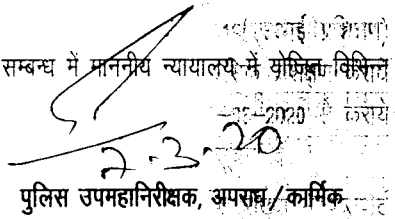 सम्बन्ध में माननीय न्यायालय में योजित विभिन्न
-2020 कराये
7.3.20
पुलिस उपमहानिरीक्षक, अपराध/कार्मिक